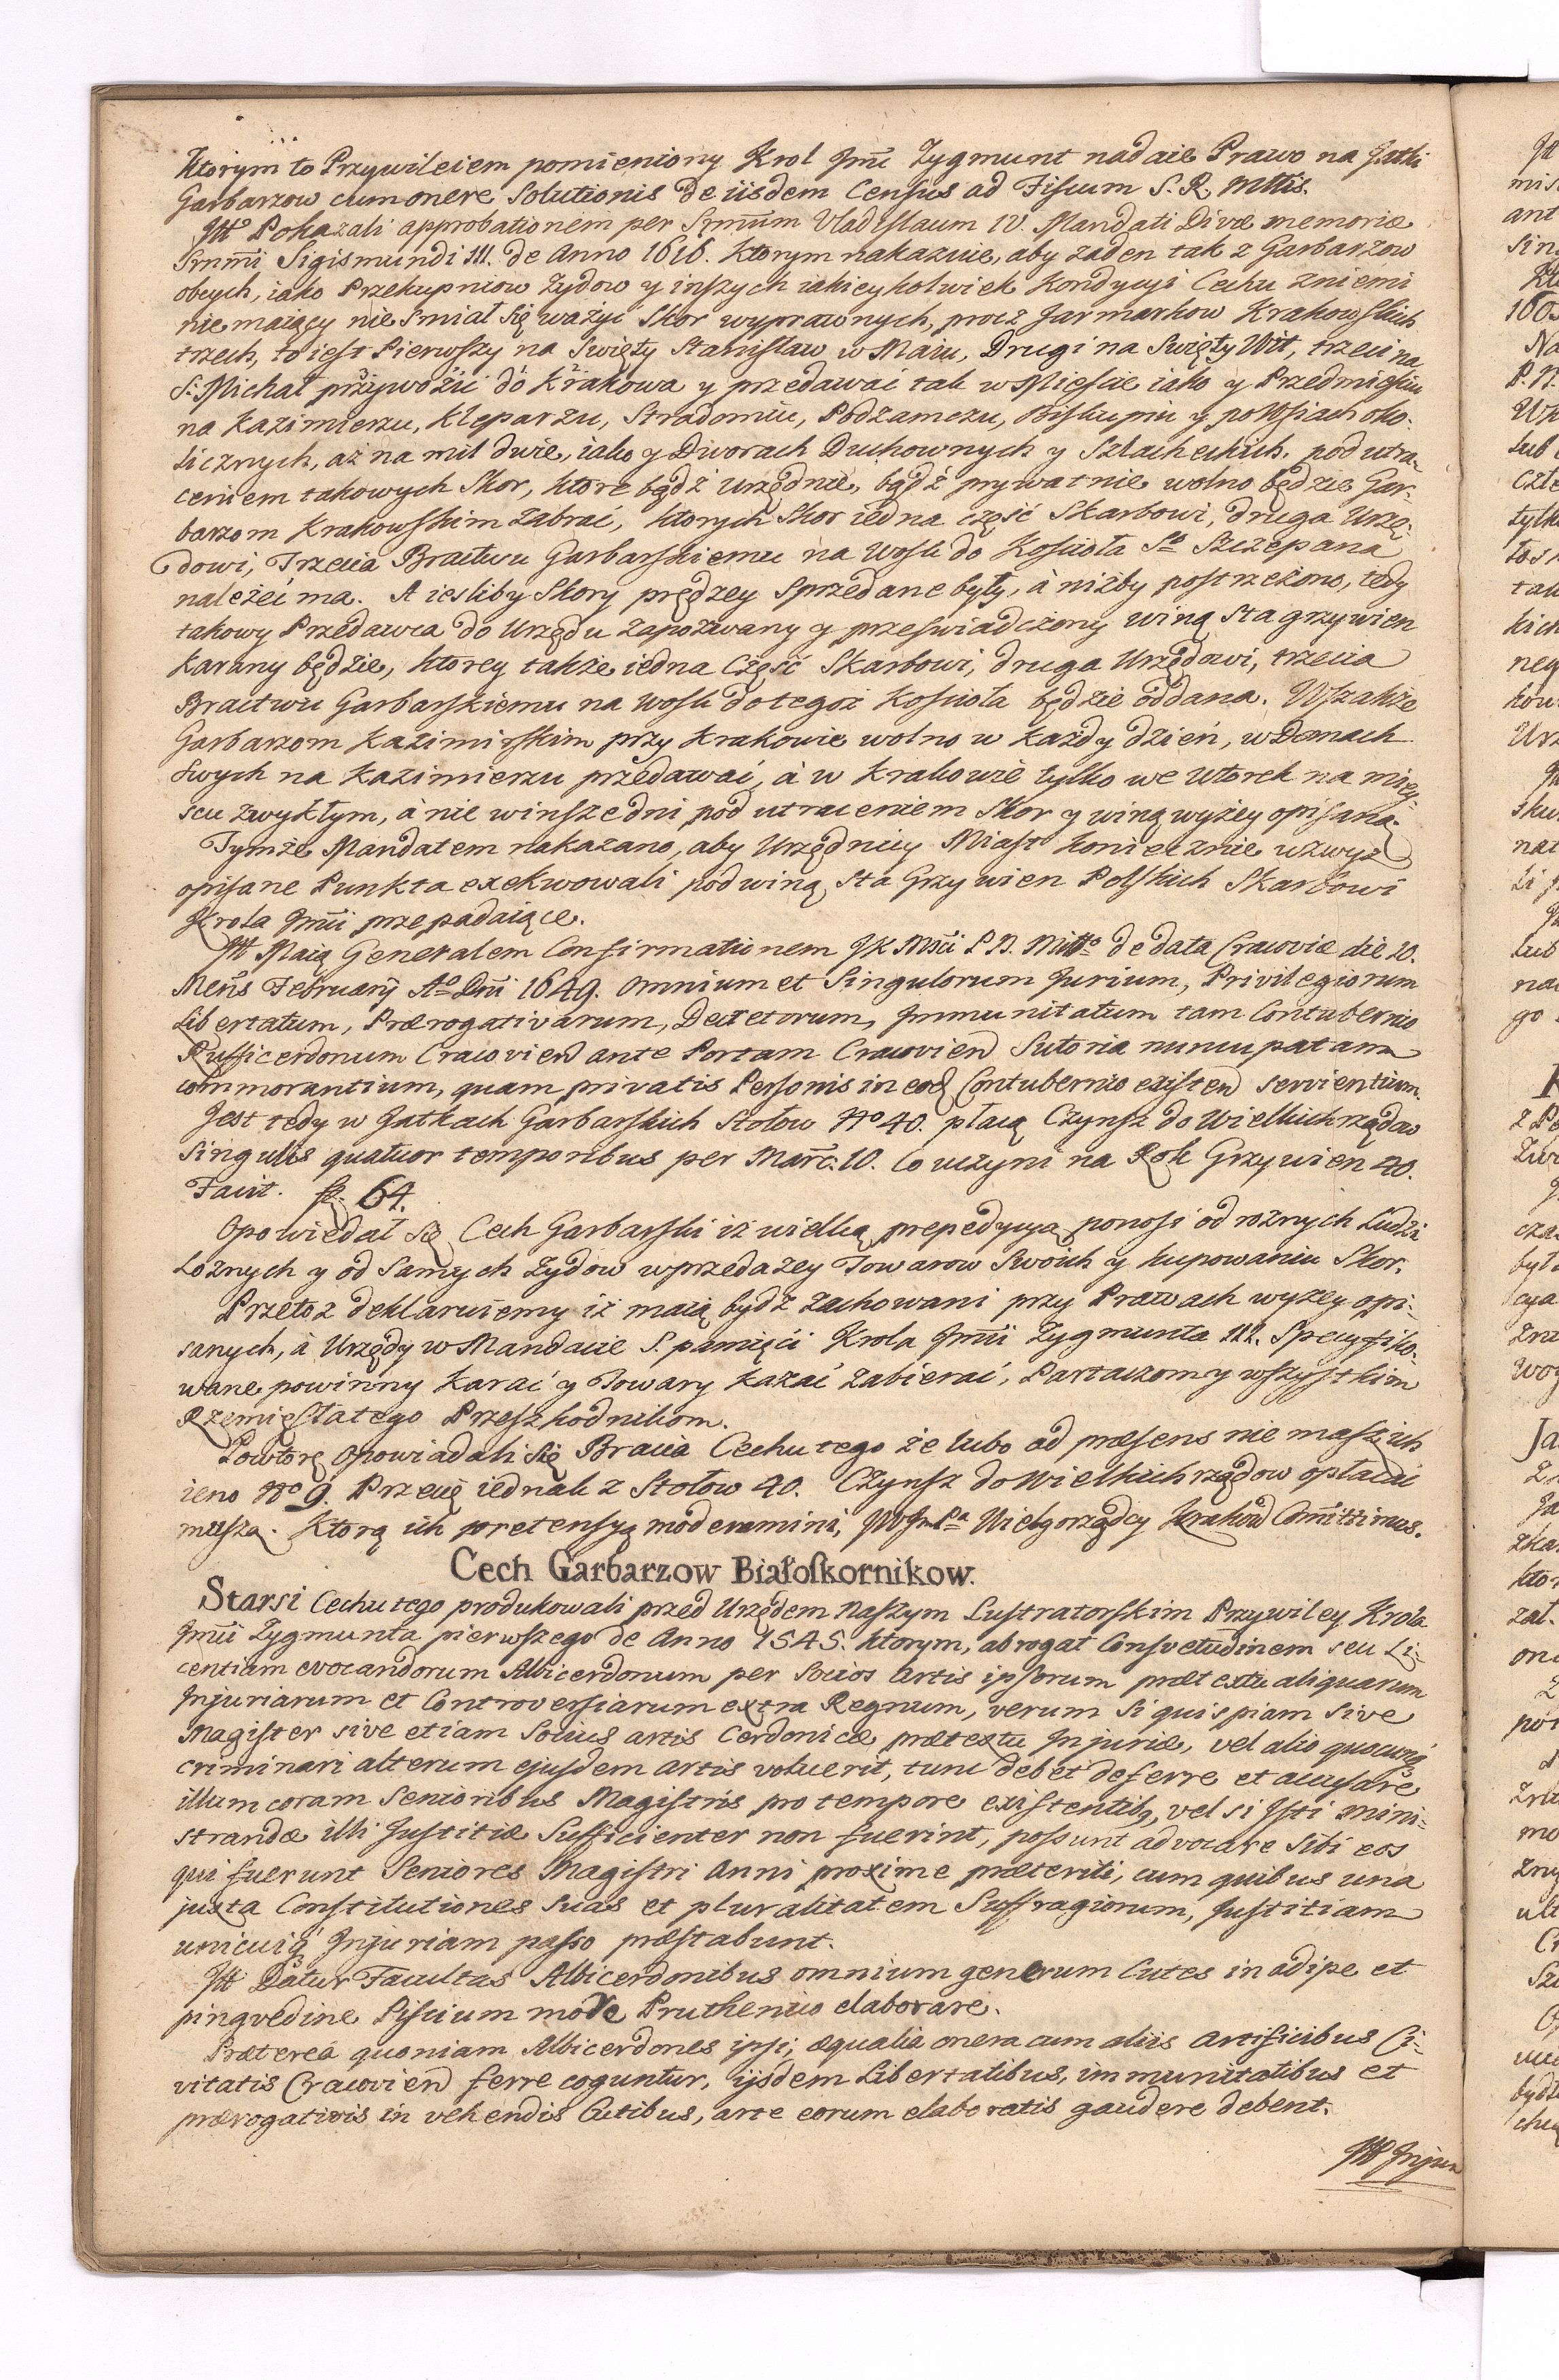 Ktorym to Przywileiem pomieniony Krol Jmć Zygmunt nadaie Prawo na Jatki
Garbarzow cum onere Solutionis de iisdem Census ad Fiscum S. R. Mttis.
Itt Pokazali approbationem per Srm̃um Vladislaum IV. Mandati Divæ memoriæ
Srm̃i Sigismundi III. de Anno 1616. Ktorym nakazuie, aby zaden tak z Garbarzow
obcych, iako Przekupniow Zydow y inszych iakieykolwiek Kondycyi Cechu zniemi
nie maiący nie smiał się ważyć Skor wyprawnych, procz Jarmarkow Krakowskich
trzech, to iest Pierwszy na Swięty Stanisław w Maiu, Drugi na Swięty Wit, trzeci na
S. Michał przywozić do Krakowa y przedawać tak w Miescie iako y Przedmiesciu
na Kazimierzu, Kleparzu, Stradomiu, Podzamczu, Biskupiu y po Wsiach oko-
licznych, aż na mil dwie, iako y Dworach Duchownych y Szlacheckich, pod utra-
ceniem takowych Skor, ktore bądź urzędnie, bądź prywatnie wolno będzie Gar-
barzom Krakowskim zabrać, ktorych Skor iedna część Skarbowi, druga Urzę-
dowi, Trzecia Bractwu Garbarskiemu na Wosk do Koscioła So Szczepana
należeć ma. A iesliby Skory prędzey Sprzedane były, à niżby postrzeżono, tedy
takowy Przedawca do Urzędu zapozwany y przeswiadczony winą Sta grzywien
karany będzie, ktorey także iedna Część Skarbowi, druga Urzędowi, trzecia
Bractwu Garbarskiemu na Wosk do tegoż Kosciola będzie oddana. Wszakże
Garbarzom Kazimirskim przy Krakowie wolno w każdy dzień, w Domach
Swych na Kazimierzu przedawać, à w Krakowie tylko we Wtorek na miey-
scu zwykłym, à nie winsze dni pod utraceniem Skor y winą wyżey opisaną.
Tymże Mandatem nakazano, aby Urzędnicy Miast koniecznie wzwyż
opisane Punkta exekwowali pod winą Sta Grzywien Polskich Skarbowi
Krola Jmci przepadaiące.
Itt Maią Generalem Confirmationem JK Mści P. N. Mitto de data Cracoviæ die 20.
Mens Februarÿ Ao Dni 1649. omnium et Singulorum Jurium, Privilegiorum
Libertatum, Prærogativarum, Decretorum, Immunitatum tam Contubernio
Rufficerdonum Cracovien ante Portam Cracovien Sutoria nuncupatam
commorantium, quam privatis Personis in eod Contubernio existen servientium.
Jest tedy w Jatkach Garbarskich Stołow No 40. płacą Czynsz do Wielkichrządow
Singulis quatuor temporibus per Marc. 10. Co uczyni na Rok Grzywien 40.
Facit. f. 64.
Opowiedał się Cech Garbarski iż wielką prepedycyą ponosi od rożnych Ludzi
Lożnych y od Samych Zydow w przedażey Towarow Swoich y kupowaniu Skor.
Przetoż deklaruiemy iż maią bydź zachowani przy Prawach wyżey opi-
sanych, à Urzędy w Mandacie S. pamięci Krola Jmci Zygmunta III. Specyfiko-
wane powinny karać y Towary kazać zabierać, Partaczom y wszystkim
Rzemięsła tego Przeszkodnikom.
Powtorę opowiadali się Bracia Cechu tego że lubo ad præsens nie masz ich
ieno No 9. Przecię iednak z Stołow 40. Czynsz do Wielkichrządow opłacać
muszą. Ktorą ich pretensyą moderamini, JW Jm Pa Wielgorządcy Krakow Comittimus.
Cech Garbarzow Białoskornikow.
Starsi Cechu tego produkowali przed Urzędem naszym Lustratorskim Przywiley Krola
Jmci Zygmunta pierwszego de Anno 1545. ktorym, abrogat Consvetudinem seu Li-
centiam evocandorum Albicerdonum per Socios artis ipsorum prætextu aliquarum
Injuriarum et Controversiarum extra Regnum, verum si quispiam sive
Magister sive etiam Socius artis Cerdonicæ prætextu Injuriæ, vel alio quocunq
criminari alterum ejusdem artis voluerit, tunc debet deferre et accusare
illum coram Senioribus Magistris pro tempore existentibq, vel si Isti mini-
strandæ illi Justitiæ Sufficienter non fuerint, possunt advocare Sibi eos
qui fuerunt Seniores Magistri Anni proxime præteriti, cum quibus una
juxta Constitutiones suas et pluralitatem Suffragiorum, Justitiam
unicuiq Injuriam passo præstabunt.
Itt Datur Facultas Albicerdonibus omnium generum Cutes in adipe et
pingvedine Piscium more Pruthenico elaborare.
Præterea quoniam Albicerdones ipsi, æqualia onera cum aliis artificibus Ci-
vitatis Cracovien ferre coguntur, iisdem Libertatibus, immunitatibus et
prærogativis in vehendis Cutibus, arte eorum elaboratis gaudere debent.
Itt Injun